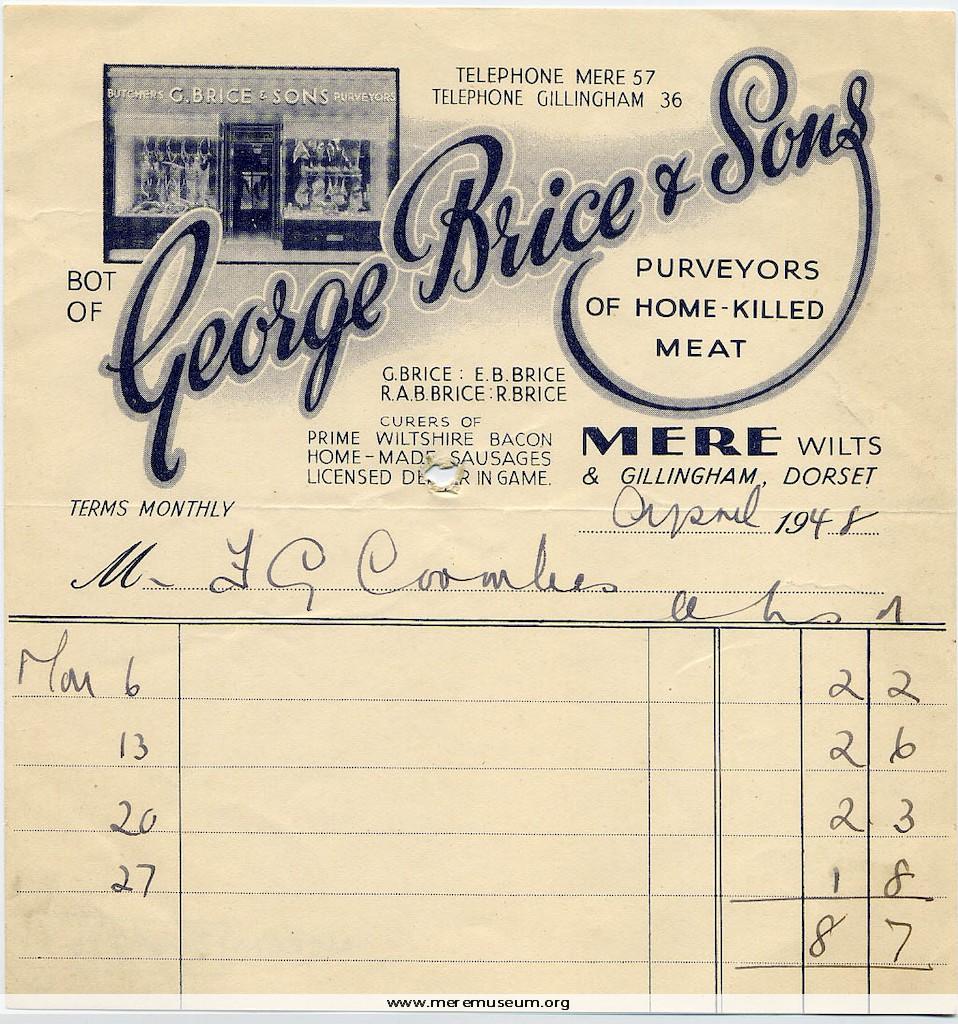 TELEPHONE MERE 57
TELEPHONE GILLINGHAM 36
BUTCHERS G. BRICE & SONS PURVEYORS
BOT OF
George Brice & Sons
PURVEYORS
OF HOME-KILLED
MEAT
G.BRICE : E.B.BRICE
R.A.B.BRICE : R.BRICE
CURERS OF
PRIME WILTSHIRE BACON
HOME-MADE SAUSAGES
LICENSED IN GAME.
MERE WILTS
& GILLINGHAM, DORSET
TERMS MONTHLY
April 1948
M- F G Coombes
Mar 6 2 2
13 2 6
20 2 3
27 1 8
8 7
www.meremuseum.org